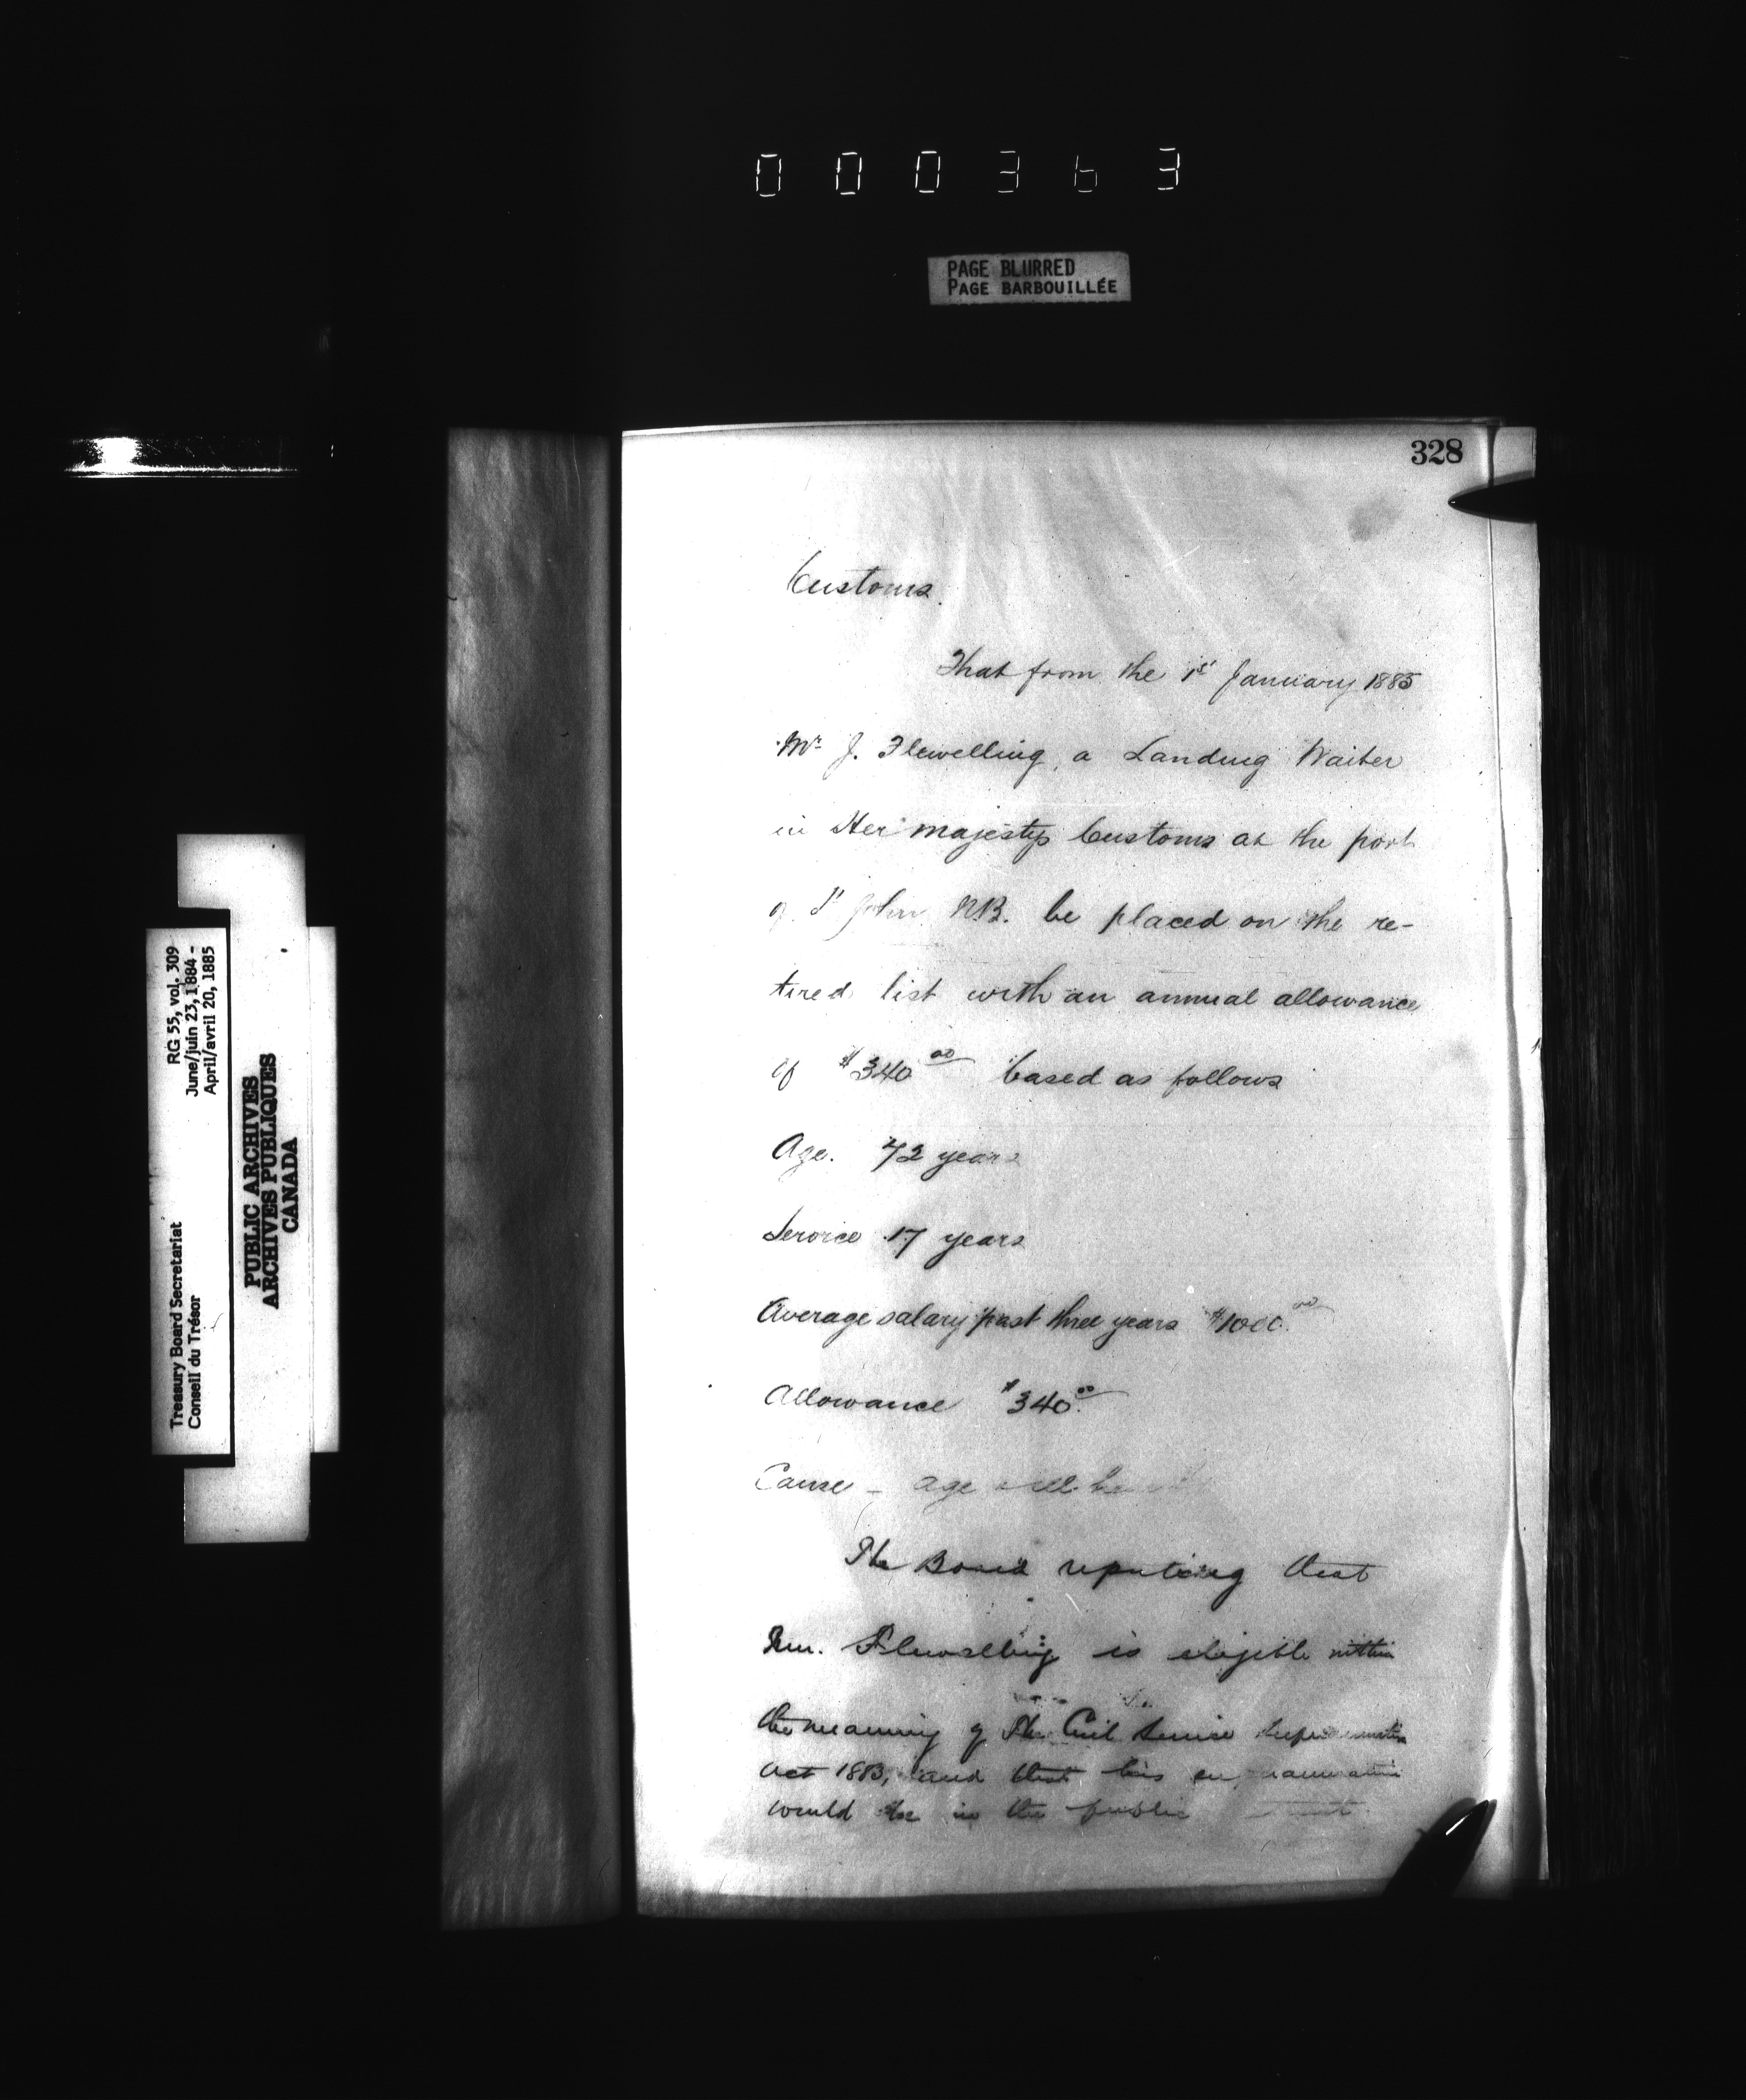 000363
PAGE BLURRED
PAGE BARBOUILLÉE
328
Customs.
That from the 1st January 1885
Mr J. Flewelling, a Landing Waiter
in Her Majestys Customs at the port
of St John NB. be placed on the re-
tired list with an annual allowance
of $340.00 based as follows
Age. 72 years
Service 17 years
Average salary past three years $1000.00
Allowance $340.00
Cause - age
The Board reporting that
Mr. Flewelling is eligible within
the meaning of The Civil Service Superannuation
Act 1883, and that his superannuation
would be in the public
RG 55, vol. 309
June/juin 23, 1884 -
April/avril 20, 1885
Treasury Board Secretariat
Conseil du Trésor
PUBLIC ARCHIVES
ARCHIVES PUBLIQUES
CANADA